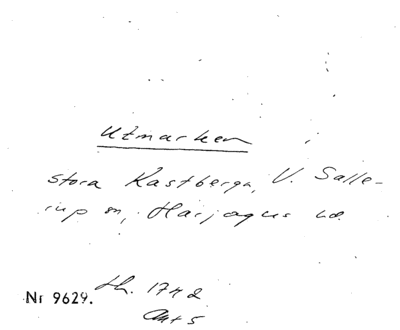 Utmarken
Stora Kastberga, V. Salle-
rup sn, Harjagers hd.
1742
Nr 9629.
Akt 5